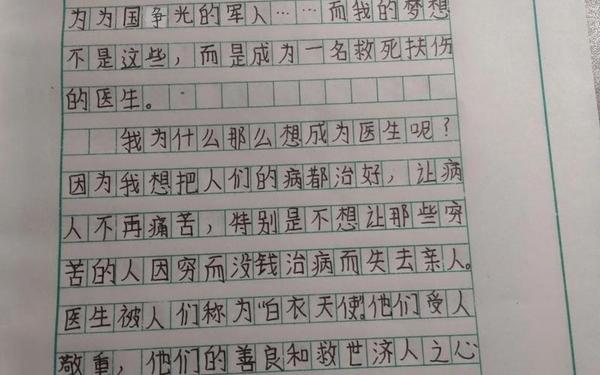 为为国争光的军人……而我的梦想
不是这些，而是成为一名救死扶伤
的医生。
我为什么那么想成为医生呢？
因为我想把人们的病都治好，让病
人不再痛苦，特别是不想让那些穷
苦的人因穷而没钱治病而失去亲人。
医生被人们称为“白衣天使”。他们受人
敬重，他们的善良和救世济人之心